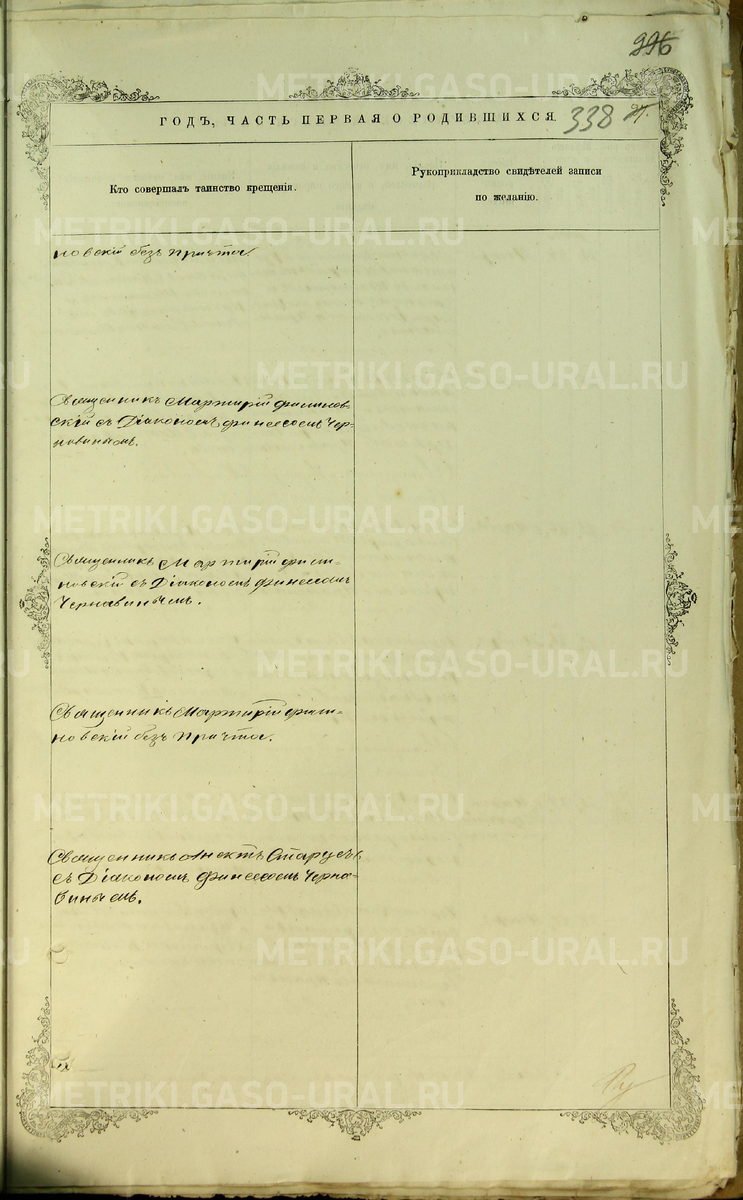 996
ГОДЪ, ЧАСТЬ ПЕРВАЯ О РОДИВШИХСЯ.
338
Кто совершалъ таинство крещенія.
Рукоприкладство свидѣтелей записи
по желанію.
новскій безъ Причта.
Священникъ Мартирій Филинов-
скій съ Діакономъ Финеесомъ Чер-
Священникъ Мартирій Фили-
новскій съ Діакономъ Финеесомъ
Чернавинымъ.
Священникъ Мартирій Фили-
новскій безъ Причта.
Священникъ
съ Діакономъ Финеесомъ Черна-
винымъ.
METRIKI.GASO-URAL.RU